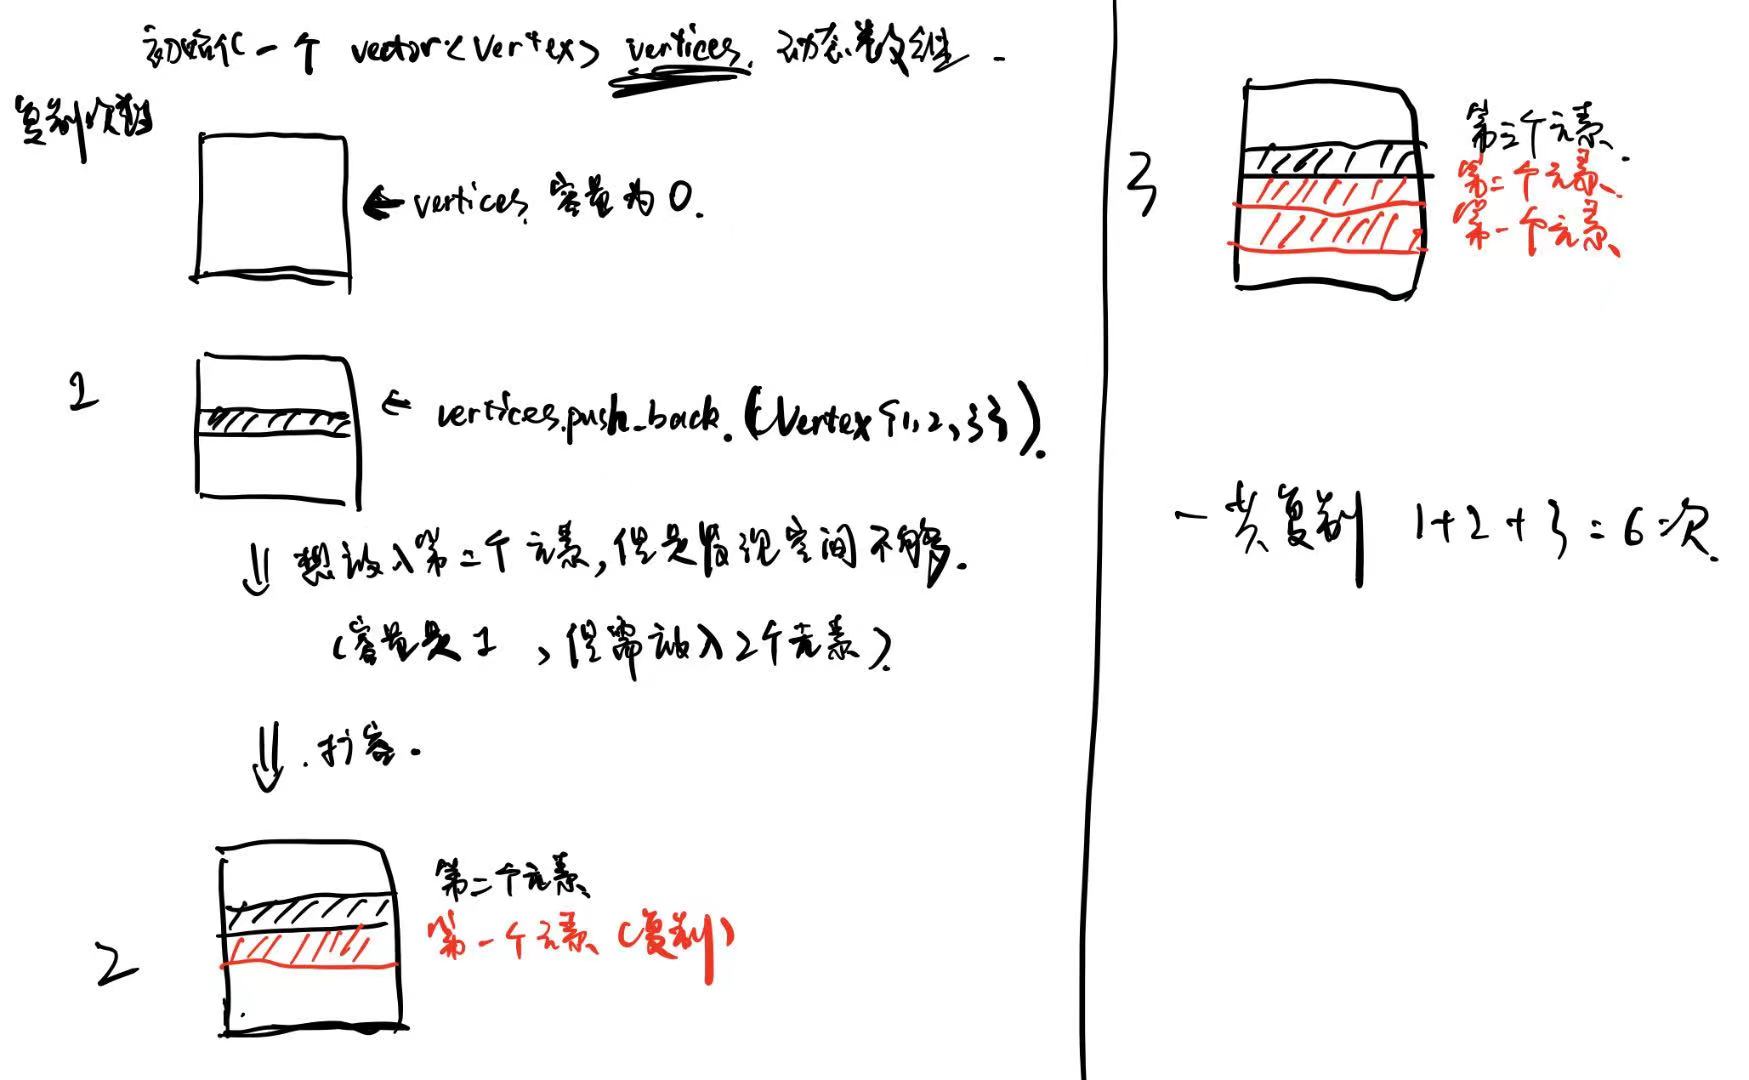 初始化一个 vector<Vertex> vertices. 动态数组.
复制次数
← vertices, 容量为0.
1
← vertices.push_back.(Vertex{1,2,3}).
⇓ 想放入第二个元素,但是发现空间不够.
(容量是1,但需放入2个元素).
⇓ .扩容.
第二个元素
第一个元素(复制)
2
第三个元素.
第二个元素
第一个元素
3
一共复制 1+2+3=6次.